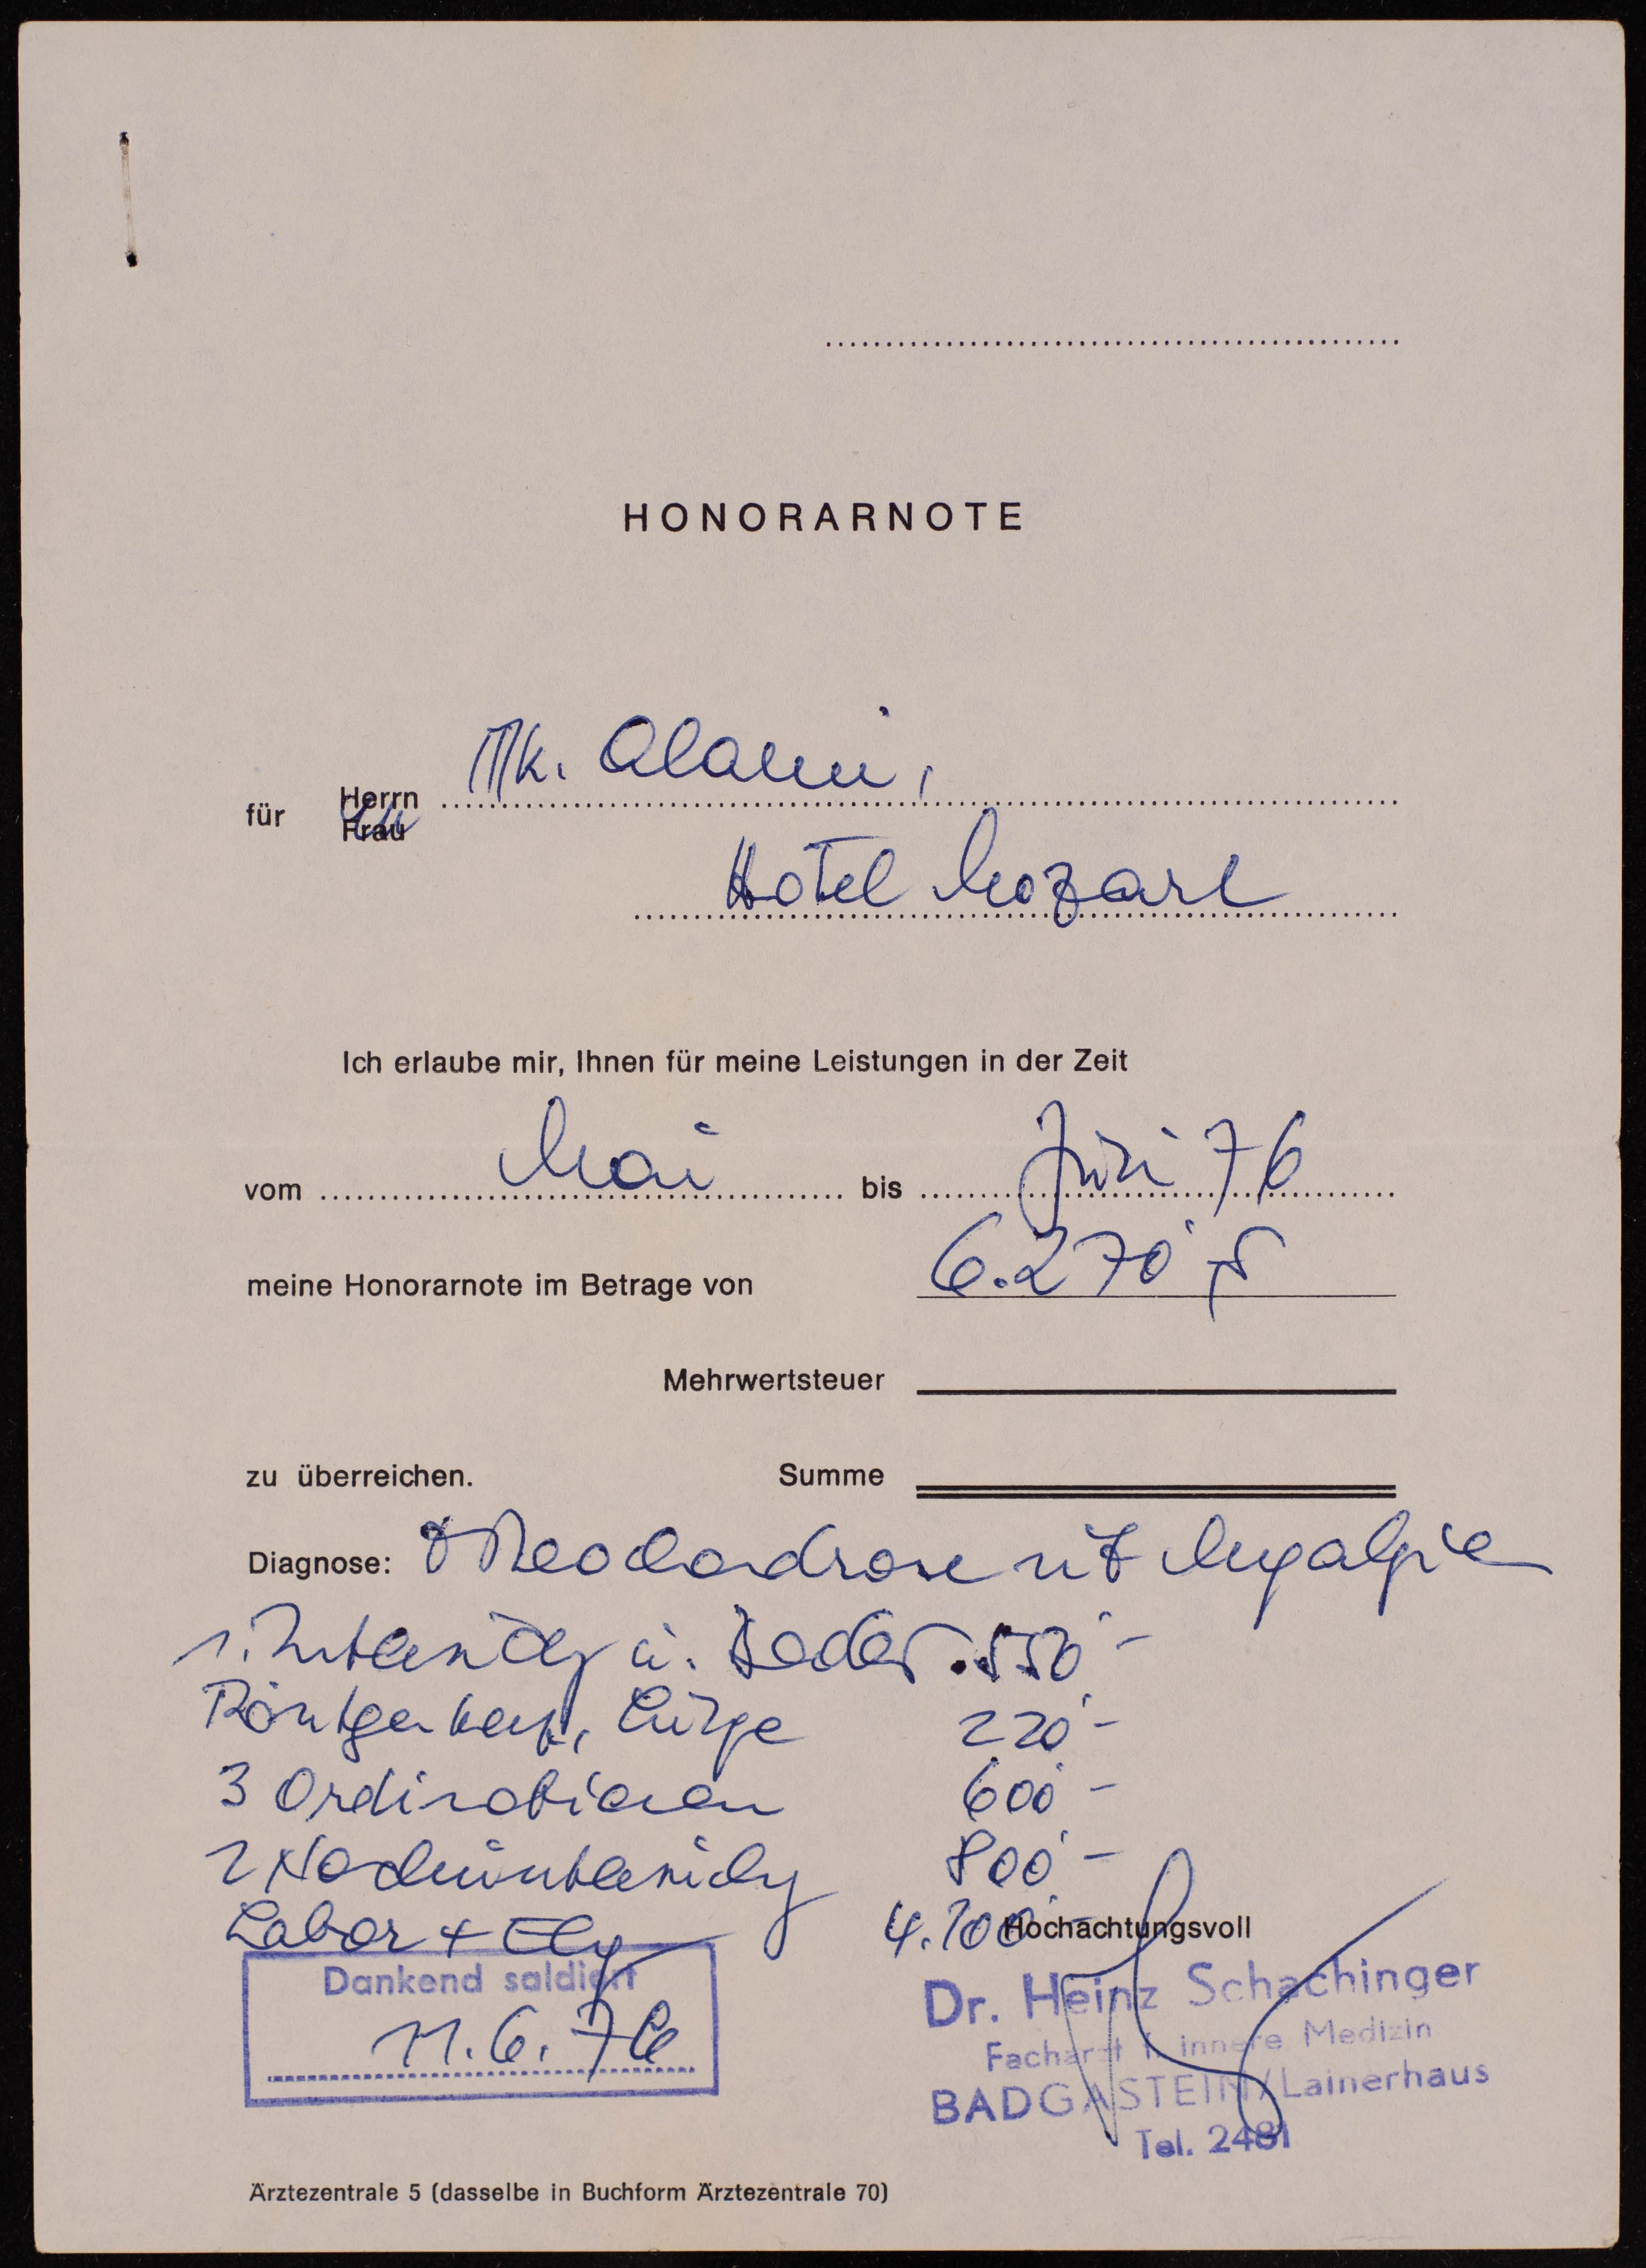 HONORARNOTE
für Herrn Frau Mr. Alami,
Hotel Mozart
Ich erlaube mir, Ihnen für meine Leistungen in der Zeit
vom Mai bis Juni 76
meine Honorarnote im Betrage von 6.270 S
Mehrwertsteuer
zu überreichen. Summe
Diagnose: mit Myalgien
1. u. Bäder. 550 -
Lunge 220 -
3 Ordinationen 600 -
2 800 -
Labor + Ekg 4.100 -
Hochachtungsvoll
Dankend saldiert
11.6.76
Dr. Heinz Schachinger
Facharzt f. innere Medizin
BADGASTEIN/Lainerhaus
Tel. 2481
Ärztezentrale 5 (dasselbe in Buchform Ärztezentrale 70)